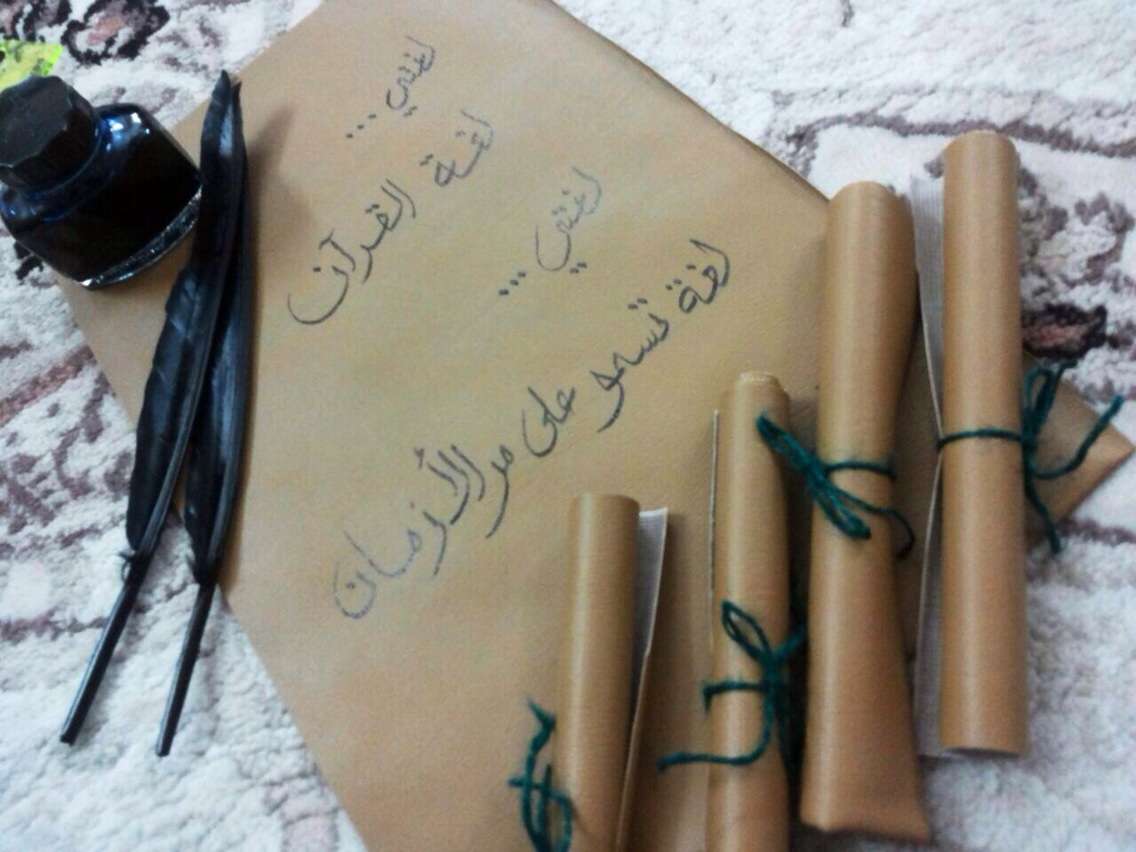 لغتي ...
لغة القرآن
لغتي ...
لغة تسمو على مر الأزمان